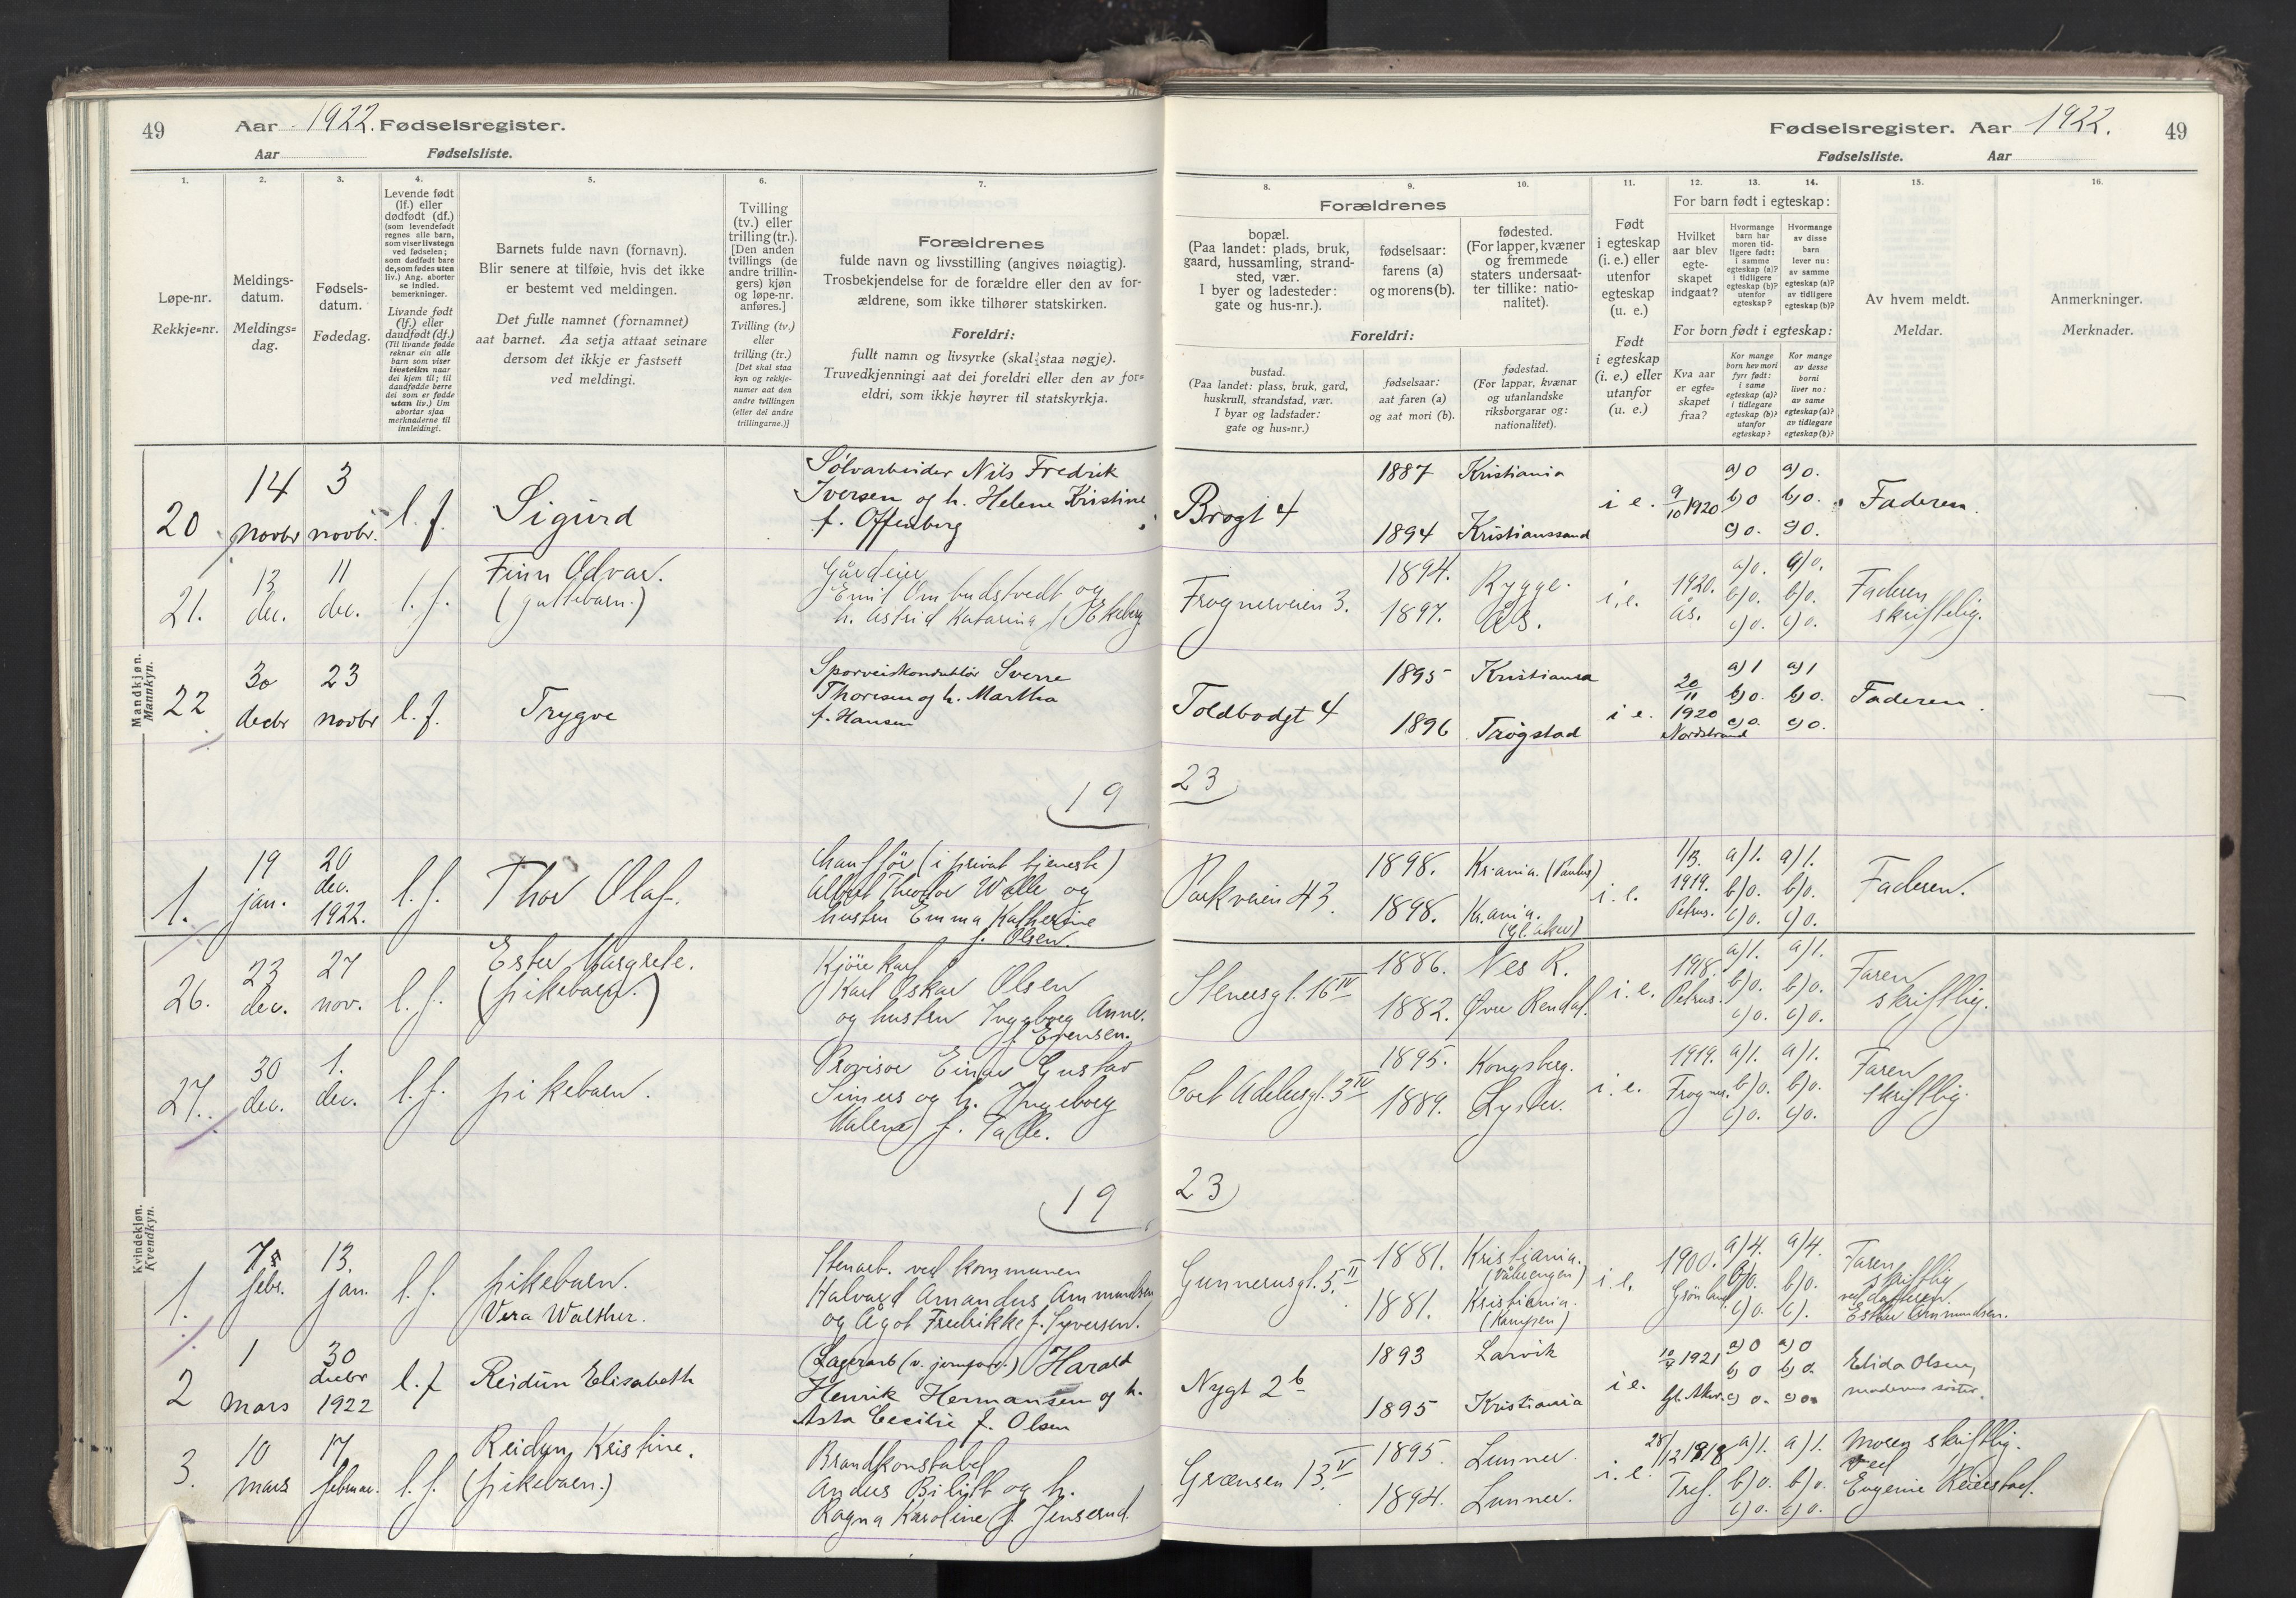 49 Aar 1922. Fødselsregister.
Aar Fødselsliste.
Fødselsregister. Aar 1922. 49
Fødselsliste. Aar
1. 2. 3. 4. 5. 6. 7.
Løpe-nr.
Rekkje=nr.
Meldings-
datum.
Meldings=
dag.
Fødsels-
datum.
Fødedag.
Levende født
(lf.) eller
dødfødt (df.)
(som levendefødt
regnes alle barn,
som viser livstegn
ved fødselen;
som dødfødt bare
de, som fødes uten
liv.) Ang. aborter
se indled.
bemerkninger.
Livande født
(lf.) eller
daudfødt (df.)
(Til livande fødde
reknar ein alle
barn som viser
livsteikn naar
dei kjem til; til
daudfødde berre
dei som er fødde
utan liv.) Um
abortar sjaa
merknaderne til
innleiding.
Barnets fulde navn (fornavn).
Blir senere at tilføie, hvis det ikke
er bestemt ved meldingen.
Det fulle namnet (fornamnet)
aat barnet. Aa setja attaat seinare
dersom det ikkje er fastsett
ved meldingi.
Tvilling
(tv.) eller
trilling (tr.).
[Den anden
tvillings (de
andre trillin-
gers) kjøn
og løpe-nr.
anføres.]
Tvilling (tv.)
eller
trilling (tr.)
[Det skal staa
kyn og rekkje-
numer aat den
andre tvillingen
(eller dei andre
trillingarne.)]
Forældrenes
fulde navn og livsstilling (angives nøiagtig).
Trosbekjendelse for de forældre eller den av for-
ældrene, som ikke tilhører statskirken.
Foreldri:
fullt namn og livsyrke (skal staa nøgje).
Truvedkjenningi aat dei foreldri eller den av for=
eldri, som ikkje høyrer til statskyrkja.
8. 9. 10. 11. 12. 13. 14. 15. 16.
Forældrenes
bopæl.
(Paa landet: plads, bruk,
gaard, hussamling, strand-
sted, vær.
I byer og ladesteder:
gate og hus-nr.).
fødselsaar:
farens (a)
og morens (b).
fødested.
(For lapper, kvæner
og fremmede
staters undersaat-
ter tillike: natio-
nalitet).
Foreldri:
bustad.
(Paa landet: plass, bruk, gard,
huskrull, strandstad, vær.
I byar og ladstader:
gate og hus=nr.)
fødselsaar:
aat faren (a)
og aat mori (b).
fødestad.
(For lappar, kvænar
og utanlandske
riksborgarar og:
nationalitet).
Født
i egteskap
(i. e.) eller
utenfor
egteskap
(u. e.)
Født
i egteskap
(i. e.) eller
utanfor
(u. e.)
For barn født i egteskap:
Hvilket
aar blev
egte-
skapet
indgaat?
Hvormange
barn har
moren tid-
ligere født:
i samme
egteskap (a)?
i tidligere
egteskap (b)?
utenfor
egteskap?
Hvormange
av disse
barn
lever nu:
av samme
egteskap (a)?
av tidligere
egteskap (b)?
For born født i egteskap:
Kva aar
er egte=
skapet
fraa?
Kor mange
born hev mori
fyrr født:
i same
egteskap (a)?
i tidlegare
egteskap (b)?
utanfor
egteskap?
Kor mange
av desse
borni
liver no:
av same
egteskap (a)?
av tidlegare
egteskap (b)?
Av hvem meldt.
Meldar.
Anmerkninger.
Merknader.
Mandkjøn.
Mannkyn.
20 14 novbr 3 novbr. l. f. Sigurd
Sølvarbeider Nils Fredrik
Iversen og h. Helene Kristine
f. Offenberg
Brogt 4
1887 Kristiania
1894 Kristianssand
i e. 9/10 1920 a) 0 b) 0 c) 0. a) 0. b) 0. c) 0. Faderen.
21. 13 dec. 11 dec. l. f. Finn Odvar.
(guttebarn.)
Gårdeier
Emil Ombudstvedt og
h. Astrid Katarina f. Ekeberg
Frognerveien 3.
1894. Rygge.
1897. Ås.
i. e. 1920. Ås. a) 0. b) 0. c) 0. a) 0. b) 0. c) 0. Faderen
skriftelig.
22 30 decbr 23 novbr l. f. Trygve
Sporveiskonduktør Sverre
Thoresen og h. Martha
f. Hansen
Toldbodgt 4
1895 Kristiania
1896 Trøgstad
i e. 20/11 1920 Nordstrand a) 1 b) 0. c) 0. a) 1 b) 0. c) 0. Faderen.
19 23
1. 19 jan. 20 dec. 1922. l. f. Thor Olaf.
Chauffør (i privat tjeneste)
Albert Theodor Walle og
hustru Emma Katherine
f. Olsen.
Parkveien 43.
1898. Kr.ania. (Paulus)
1898. Kr.ania. (Gl. aker)
i. e. 1/3. 1919. Petrus. a) 1. b) 0. c) 0. a) 1. b) 0. c) 0. Faderen.
Kvindekjøn.
Kvendkyn.
26. 23 dec. 27 nov. l. f. Ester Margrete.
(pikebarn.)
Kjørekarl
Karl Oskar Olsen
og hustru Ingeborg Anne.
f. Evensen.
Stenersgt. 16 IV
1886. Nes R.
1882. Øvre Rendal.
i. e. 1918. Petrus. a) 1. b) 0. c) 0. a) 1. b) 0. c) 0. Faren
skriftlig.
27. 30 dec. 1. dec. l. f. pikebarn.
Provisor Einar Gustav
Simers og h. Ingeborg
Malene f. Talle.
Cort Adelersgt. 3 IV
1895. Kongsberg.
1889. Lyster.
i. e. 1919. Frogner. a) 1. b) 0. c) 0. a) 1. b) 0. c) 0. Faren
skriftlig.
19 23
1. febr. 13. jan. l. f. pikebarn.
Vera Walther.
Stenarb. ved kommunen
Halvard Amandus Ammundsen
og Ågot Fredrikke f. Syversen.
Gunnerusgt. 5. II
1881. Kristiania. (Vålerengen)
1881. Kristiania. (Kampen)
i. e. 1900. Grønland. a) 4. b) 0. c) 0. a) 4. b) 0. c). Faren
skriftlig
ved datteren.
Ester Ammundsen.
2 1 mars 30 decbr 1922 l. f Reidun Elisabeth
(Lagerarb (v. jernforr.) Harald
Henrik Hermansen og h.
Asta Cecilie f. Olsen
Nygt 2b
1893 Larvik
1895 Kristiania
i e. 1921 Gl. Aker. a) 0 b) 0 c) 0. a) 0 b) 0. c) 0. Elida Olsen,
moderens søster.
3. 10 mars 17. februar. l. f. Reidun Kristine.
(pikebarn.)
Brandkonstabel
Anders Bilitt og h.
Ragna Karoline f. Jensrud.
Grænsen 13. V
1895. Lunner.
1894. Lunner.
i. e. 28/12 1918 Tref. a) 1. b) 0. c) 0. a) 1. b) 0. c) 0. Moren skriftlig.
ved
Eugenie